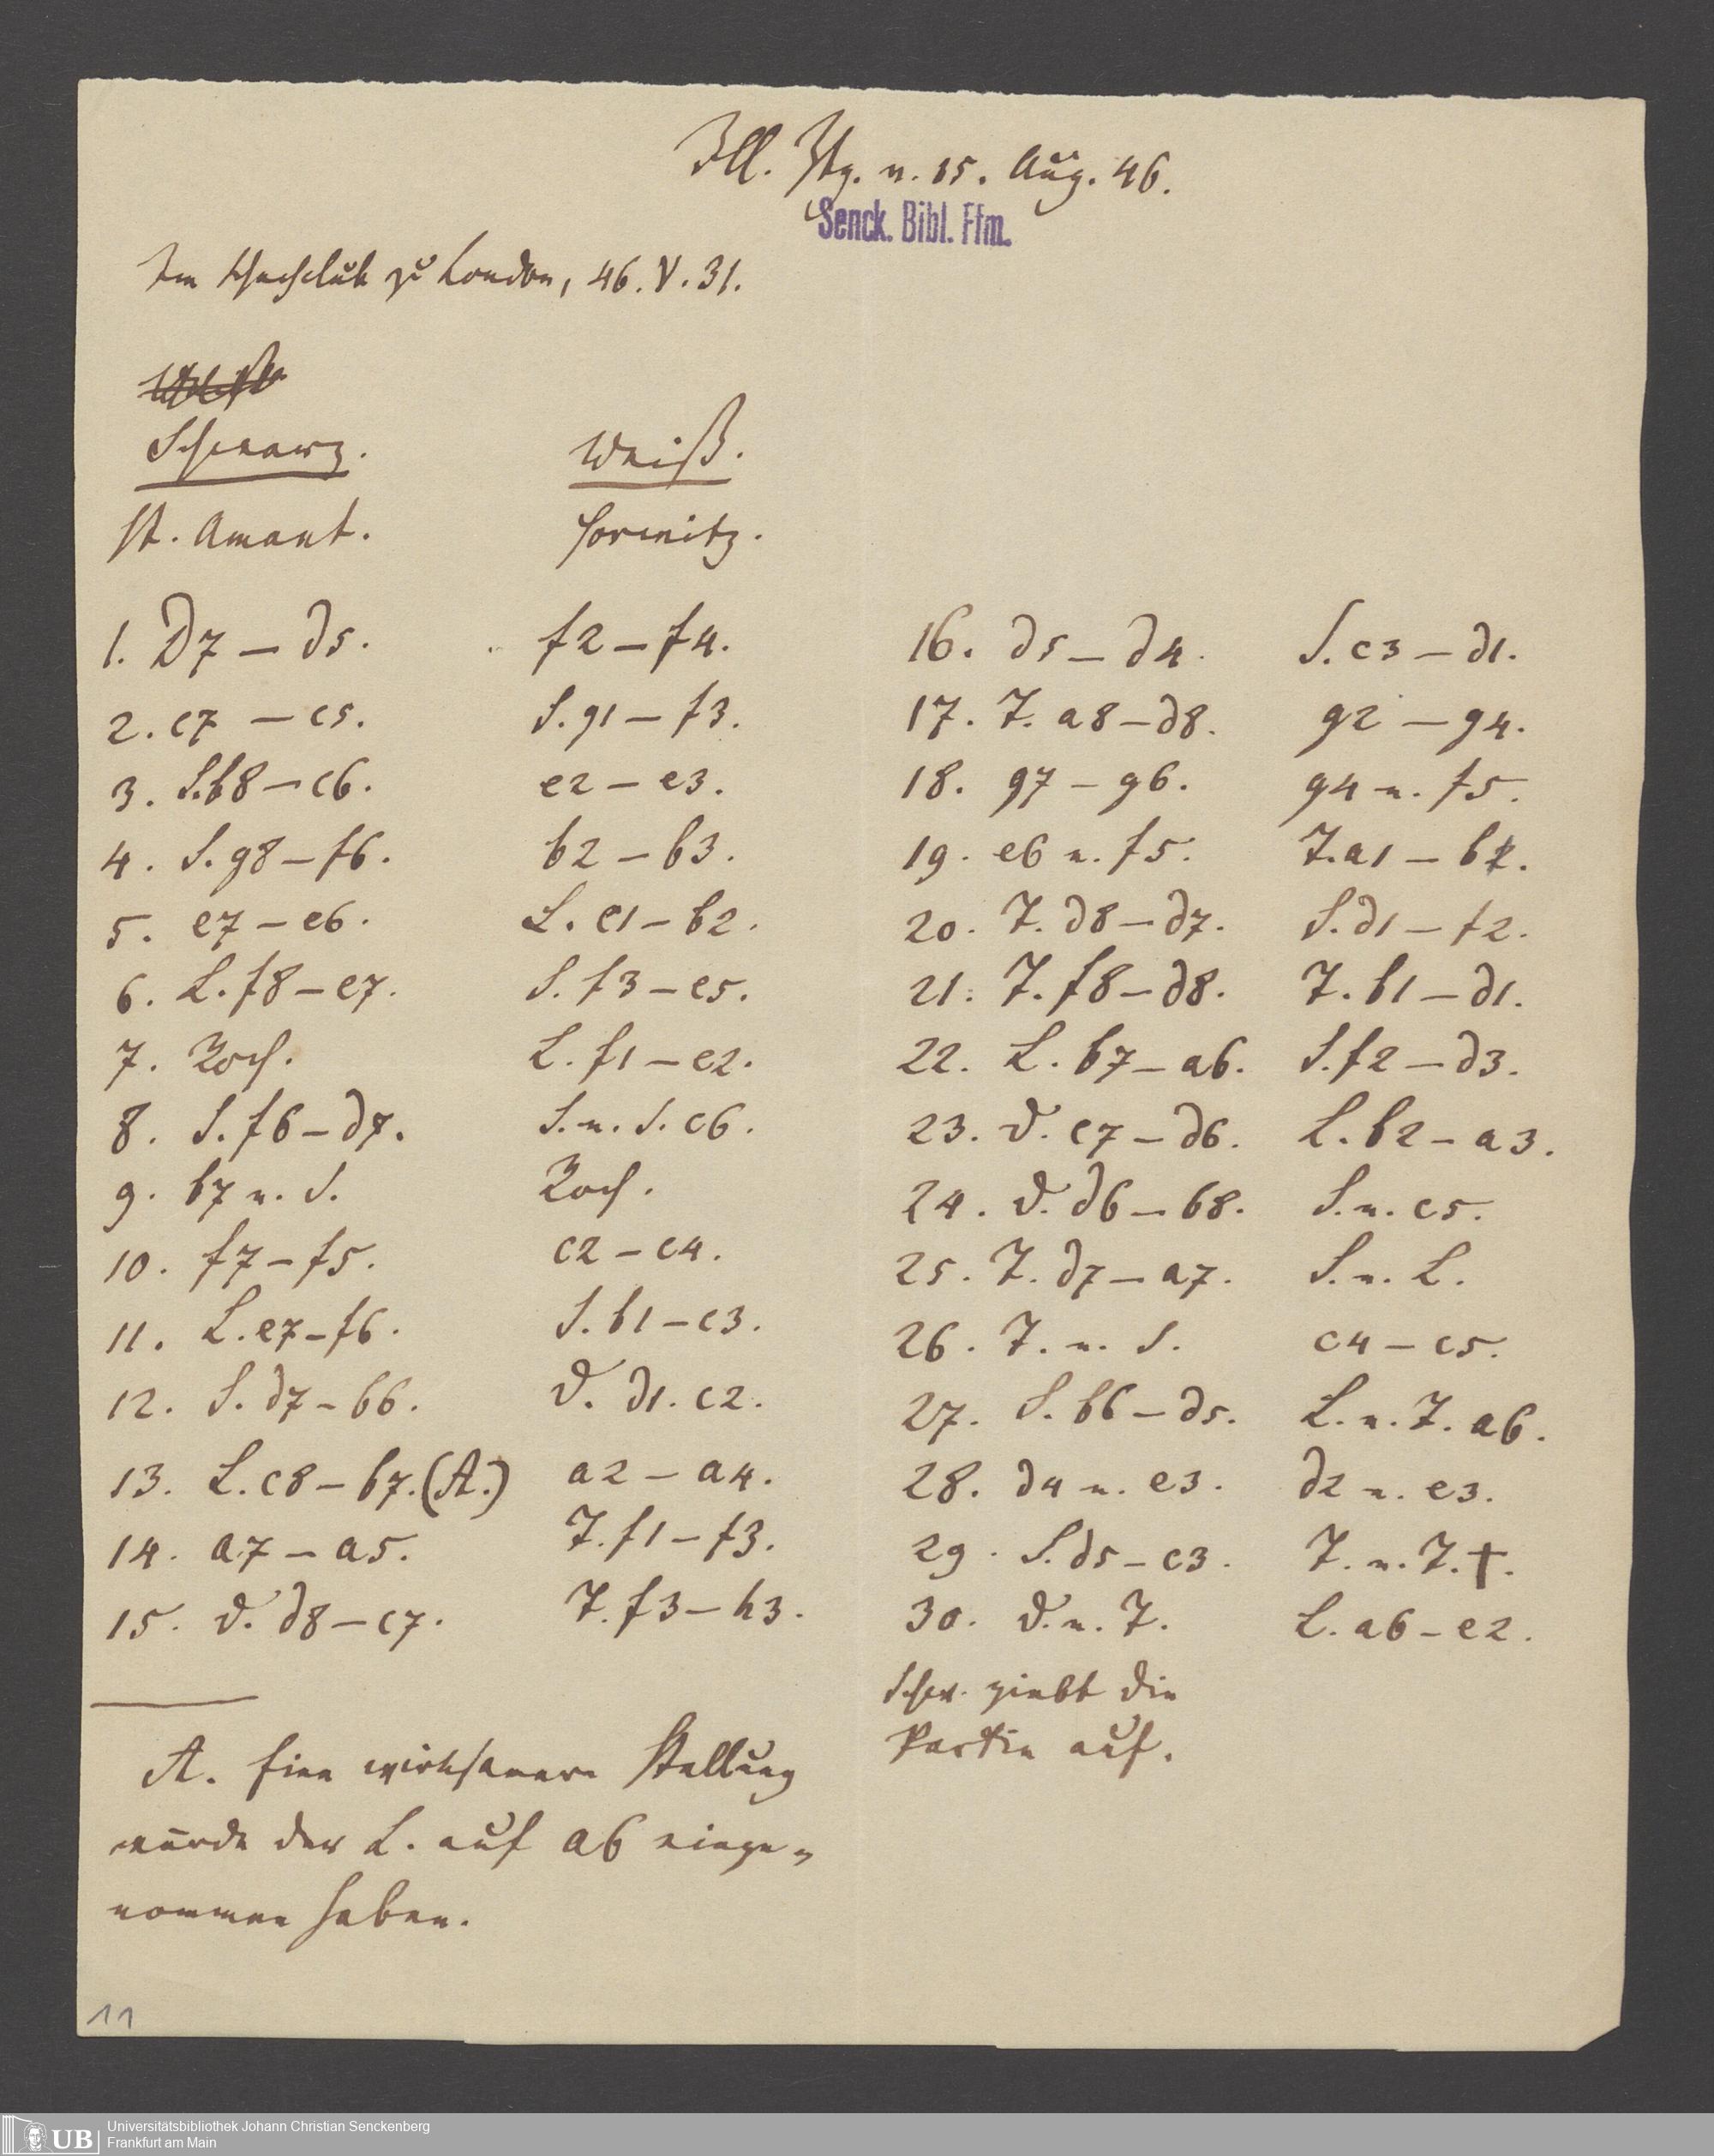 Ill. Ztg. v. 15. Aug. 46.
Senck. Bibl. Ffm.
Im Schachclub zu London, 46. V. 31.
Schwarz. Weiß.
St. Amant. Horwitz.
1. D7 — d5. f2 — f4.
2. c7 — c5. S. g1 — f3.
3. S. b8 — c6. e2 — e3.
4. S. g8 — f6. b2 — b3.
5. e7 — e6. L. c1 — b2.
6. L. f8 — e7. S. f3 — e5.
7. Roch. L. f1 — e2.
8. S. f6 — d7. S. n. S. c6.
9. b7 n. S. Roch.
10. f7 — f5. c2 — c4.
11. L. e7 — f6. S. b1 — c3.
12. S. d7 — b6. D. d1. c2.
13. L. c8 — b7. (A.) a2 — a4.
14. a7 — a5. T. f1 — f3.
15. D. d8 — c7. T. f3 — h3.
A. Eine wirksamere Stellung
würde der L. auf a6 einge-
nommen haben.
16. d5 — d4. S. c3 — d1.
17. T. a8 — d8. g2 — g4.
18. g7 — g6. g4 n. f5.
19. e6 n. f5. T. a1 — b1.
20. T. d8 — d7. S. d1 — f2.
21. T. f8 — d8. T. b1 — d1.
22. L. b7 — a6. S. f2 — d3.
23. D. c7 — d6. L. b2 — a3.
24. D. d6 — b8. S. n. c5.
25. T. d7 — a7. S. n. L.
26. T. n. S. c4 — c5.
27. S. b6 — d5. L. n. T. a6.
28. d4 n. e3. d2 n. e3.
29. S. d5 — c3. T. n. T. †.
30. D. n. T. L. a6 — e2.
Schw. giebt die
Partie auf.
11
UB
Universitätsbibliothek Johann Christian Senckenberg
Frankfurt am Main